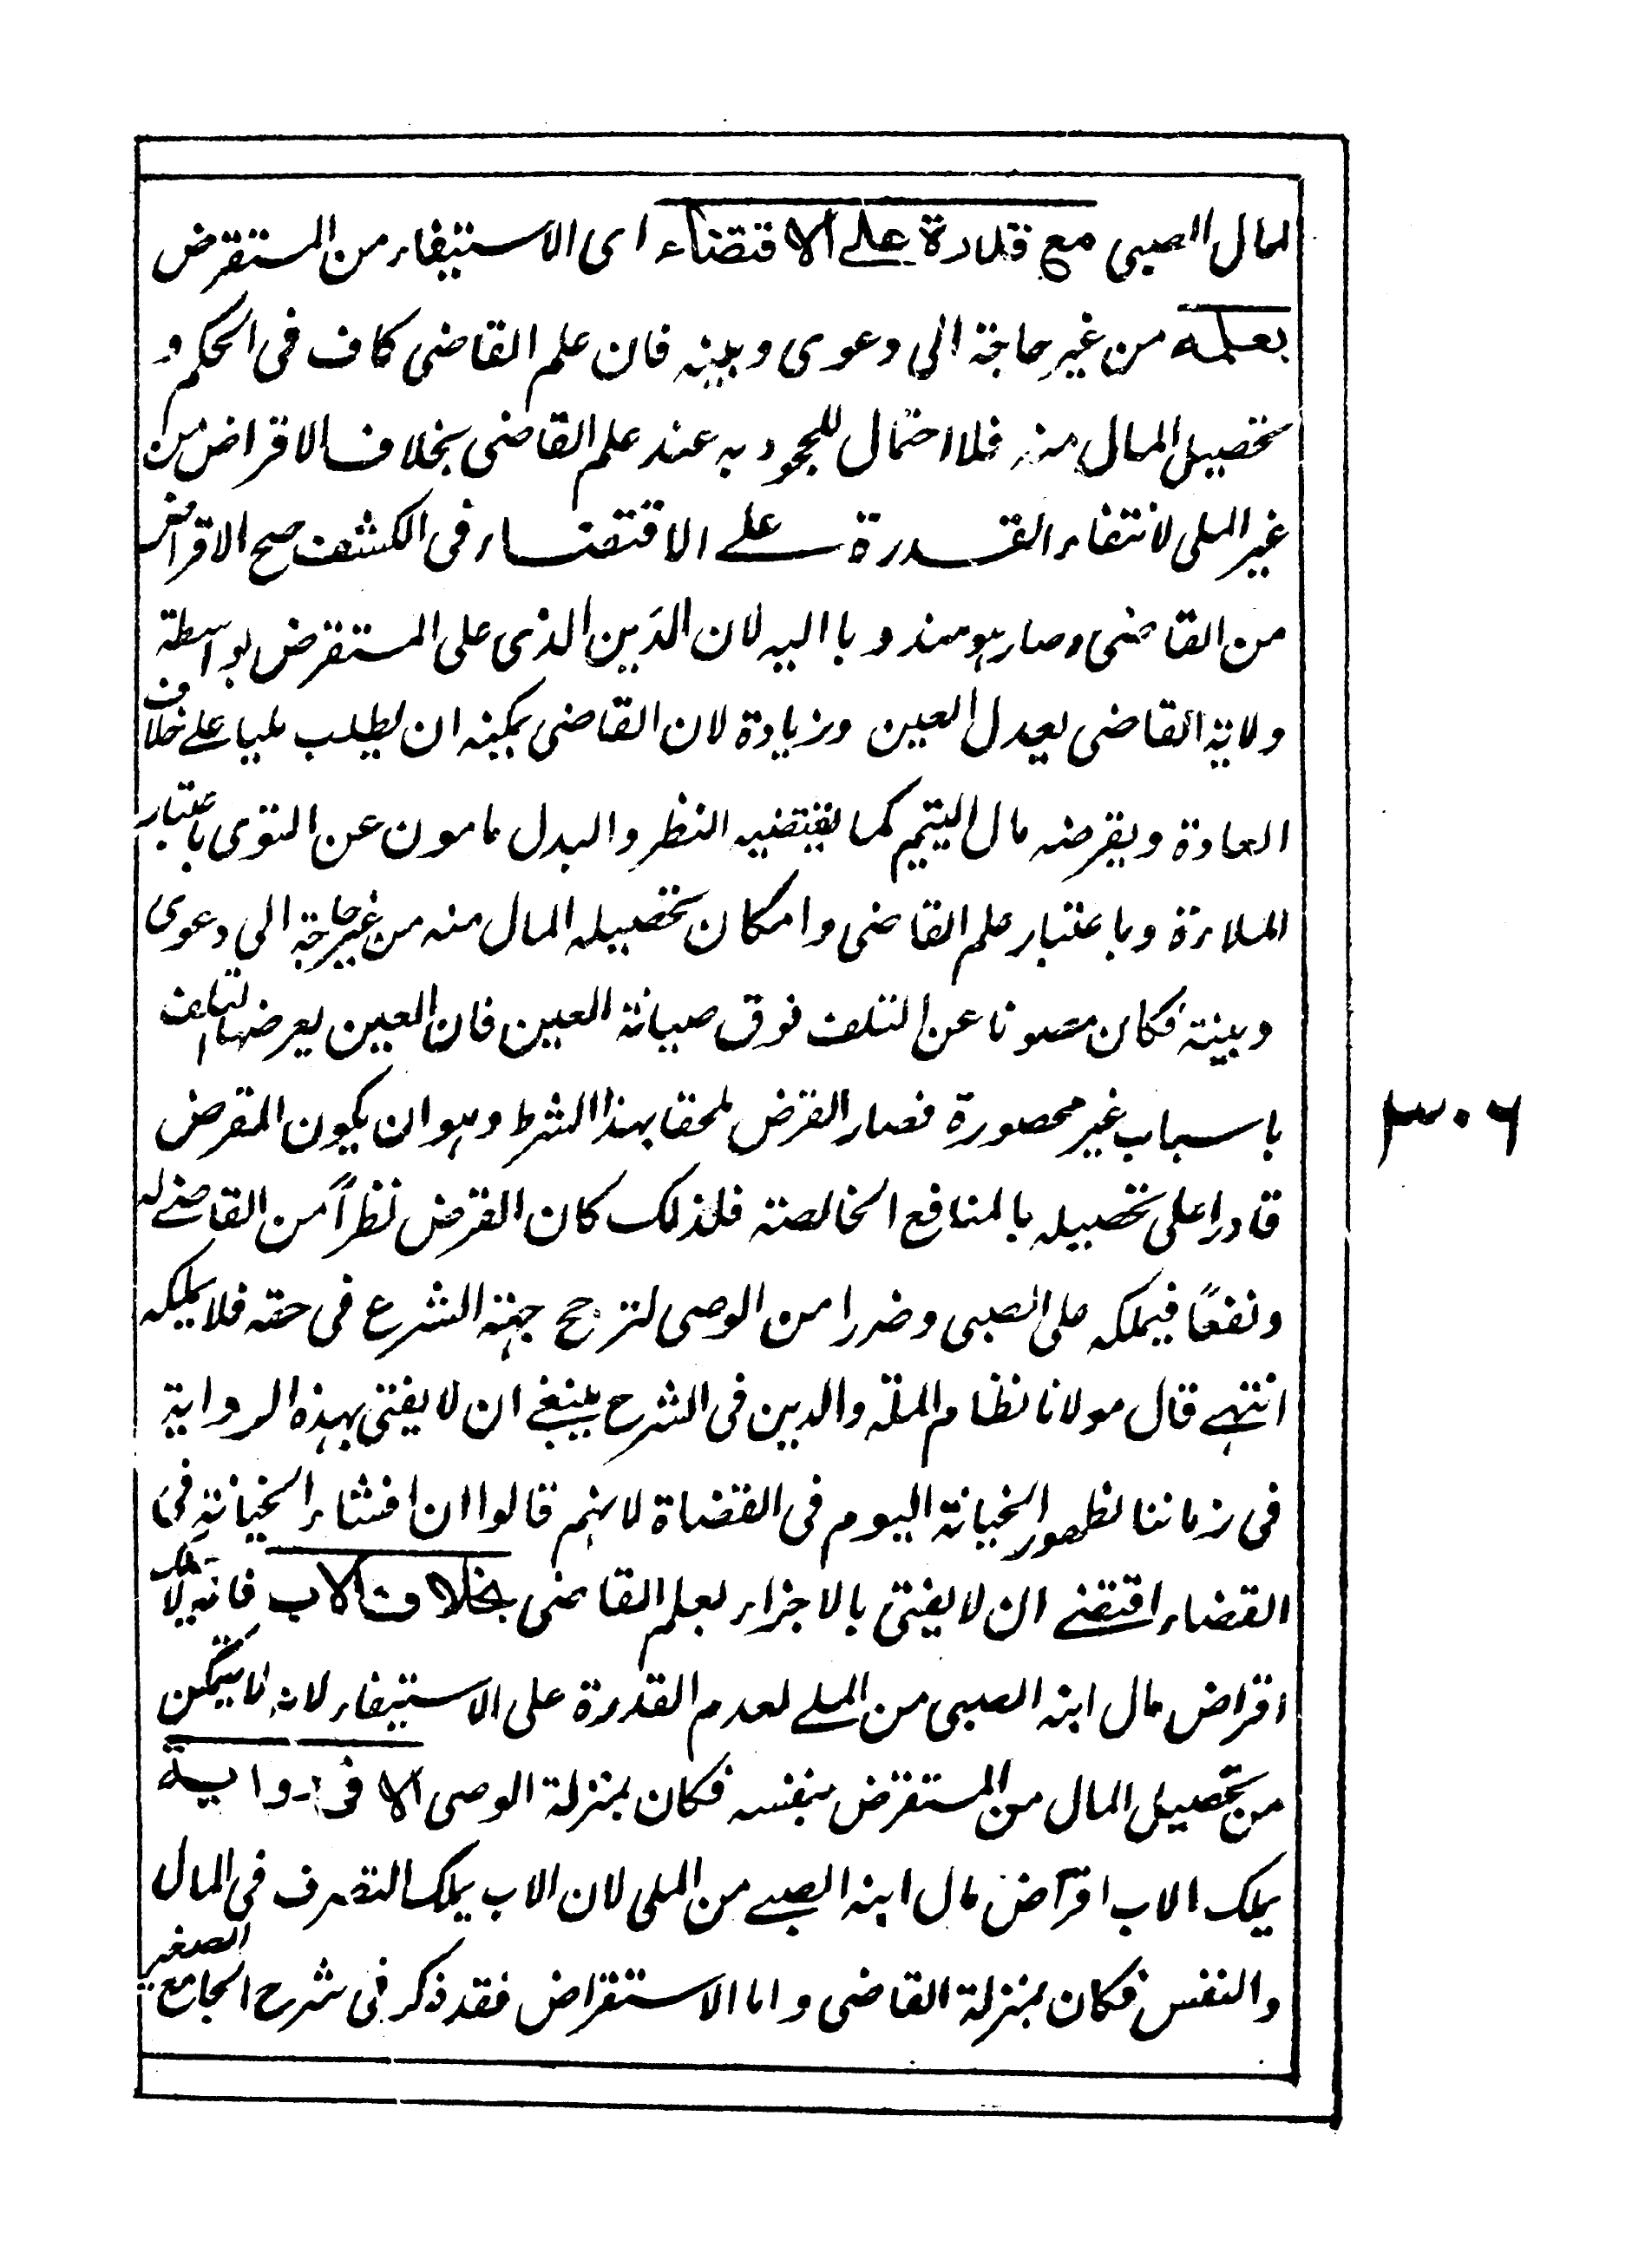 لمال الصبى مع قدرة على الاقتضاء اى الاستيفاء من المستقرض
بعلمه من غير حاجة الى دعوى وبينه فان علم القاضى كاف فى الحكم و
تحصيل المال منه فلا احتمال للجحود به عند علم القاضى بخلاف الاقراض من
غير الملى لانتفاء القدرة على الاقتضاء فى الكشف صح الاقراض
من القاضى وصار هو مندوبا اليه لان الدَين الذى على المستقرض بواسطة
ولاية القاضى يعدل العين وزيادة لان القاضى يمكنه ان يطلب مليا على خلاف
العادة ويقرضه مال اليتيم كما يقتضيه النظر والبدل مامون عن التوى باعتبار
الملاءة وباعتبار علم القاضى وامكان تحصيله المال منه من غير حاجة الى دعوى
وبينة فكان مصونا عن التلف فوق صيانة العين فان العين يعرضها التلف
باسباب غير محصورة فصار القرض ملحقا بهذا الشرط وهو ان يكون المقرض
قادرا على تحصيله بالمنافع الخالصة فلذلك كان القرض نظراً من القاضى له
ونفعًا فيملكه على الصبى وضررا من الوصى لترجح جهة الشرع فى حقه فلا يملكه
انتهى قال مولانا نظام الملة والدين فى الشرح ينبغى ان لا يفتى بهذه الرواية
فى زماننا لظهور الخيانة اليوم فى القضاة لانهم قالوا ان افشاء الخيانة فى
القضاء اقتضى ان لا يفتى بالاجراء بعلم القاضى بخلاف الاب فانه لا يملك
اقراض مال ابنه الصبى من الملى لعدم القدرة على الاستيفاء لانه لا يتمكن
من تحصيل المال من المستقرض بنفسه فكان بمنزلة الوصى الا فى رواية
يملك الاب اقراض مال ابنه الصبى من الملى لان الاب يملك التصرف فى المال
والنفس فكان بمنزلة القاضى واما الاستقراض فقد ذكر فى شرح الجامع الصغير
٣٠٦